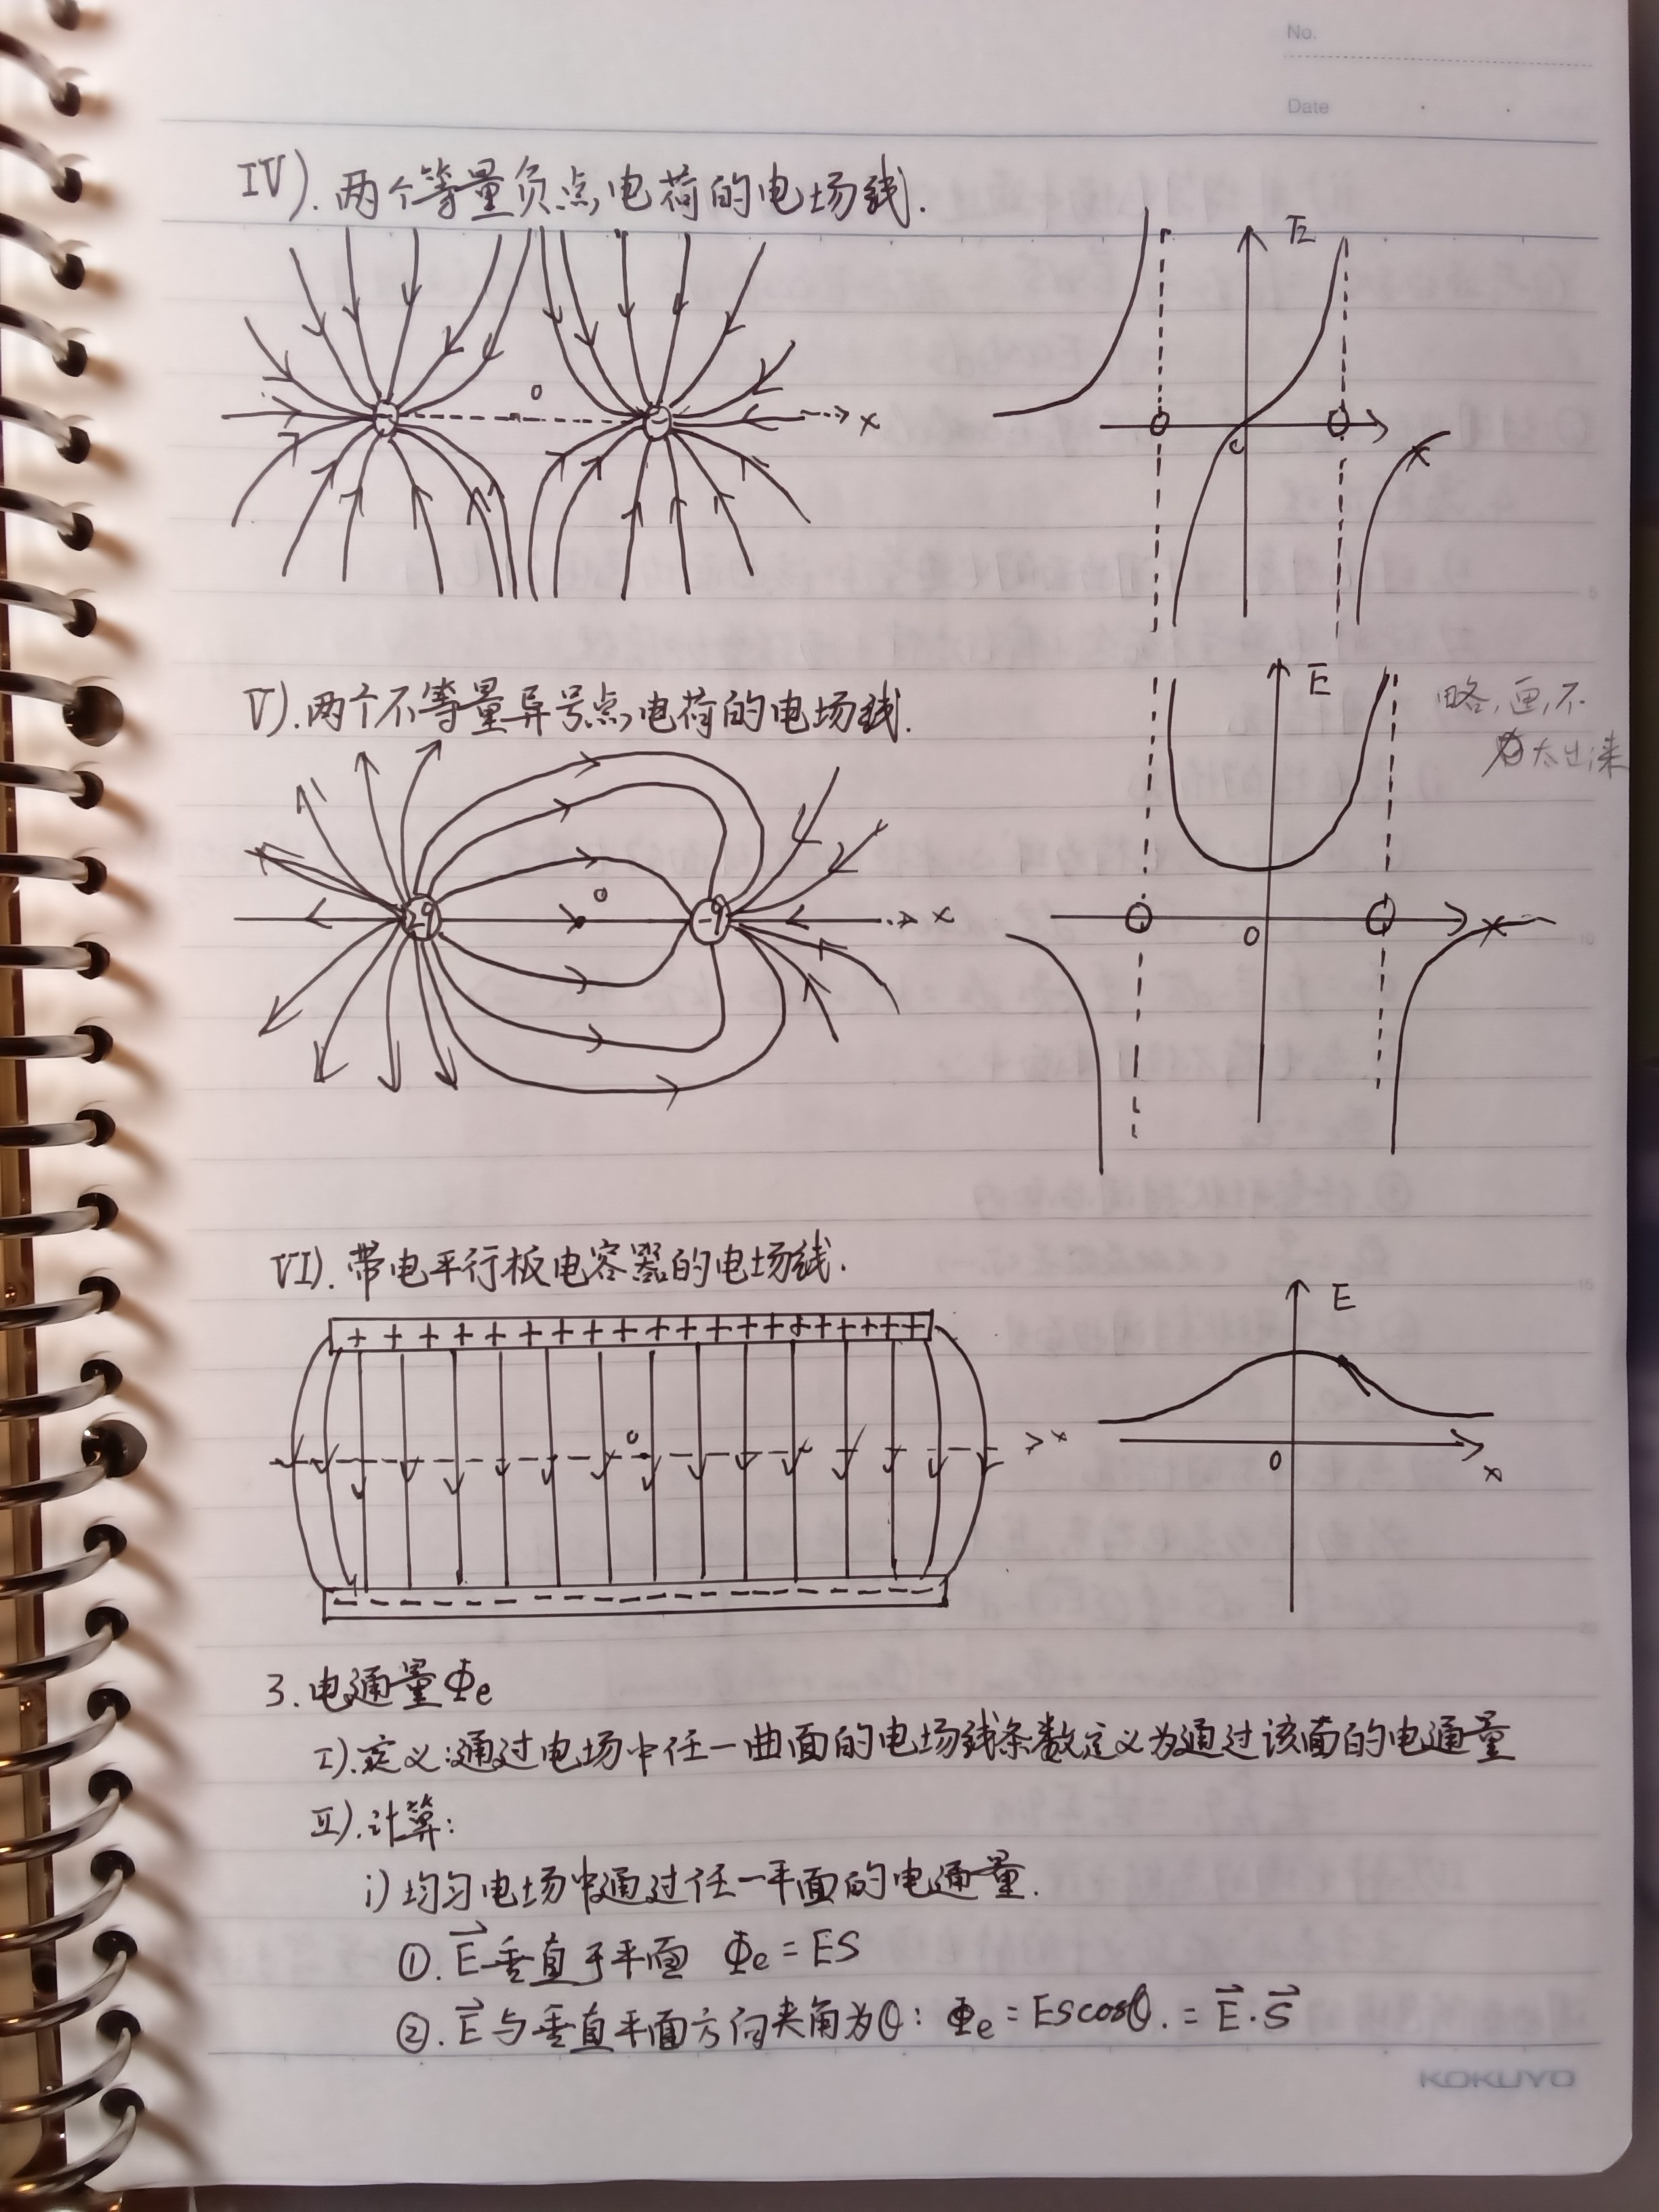 No.
Date
IV). 两个等量负点电荷的电场线.
E
0
x
0
x
V). 两个不等量异号点电荷的电场线.
E
略,画不
太出来
2q
0
-q
x
0
x
VI). 带电平行板电容器的电场线.
E
+ + + + + + + + + + + + + + + + + +
0
x
0
x
- - - - - - - - - - - - - - - - - -
3. 电通量Φe
I). 定义:通过电场中任一曲面的电场线条数定义为通过该面的电通量
II). 计算:
i) 均匀电场中通过任一平面的电通量.
①. E⃗垂直于平面 Φe = ES
②. E⃗与垂直平面方向夹角为θ: Φe = EScosθ. = E⃗·S⃗
KOKUYO